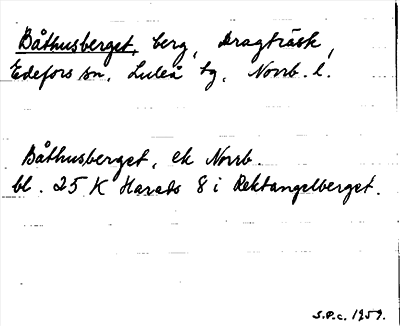 Båthusberget, berg, Dragträsk,
Edefors sn, Luleå tg, Norrb. l.
Båthusberget, ek Norrb.
bl. 25 K Harads 8 i Rektangelberget.
S.P.c. 1959.